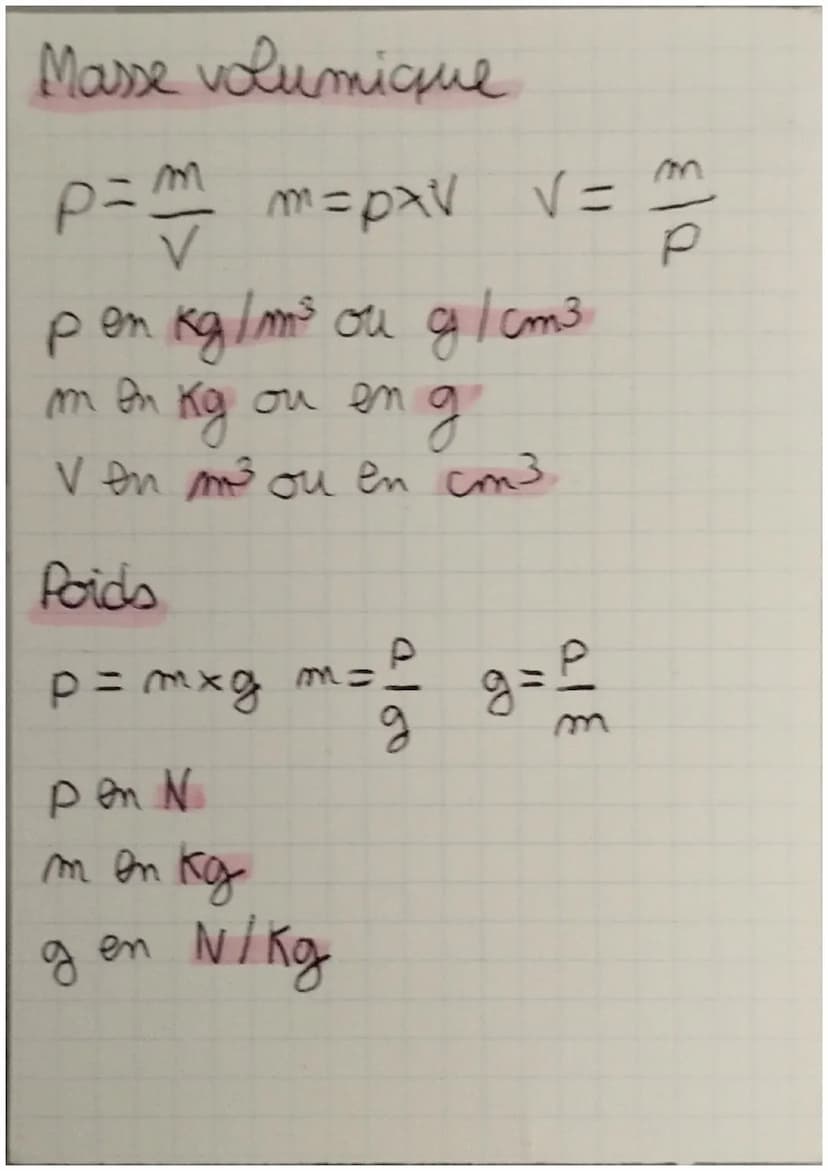 Masse volumique
ρ = m/V m = ρ×V V = m/ρ
ρ en kg/m³ ou g/cm³
m en kg ou en g
V en m³ ou en cm³
Poids
P = m×g m = P/g g = P/m
P en N
m en kg
g en N/Kg